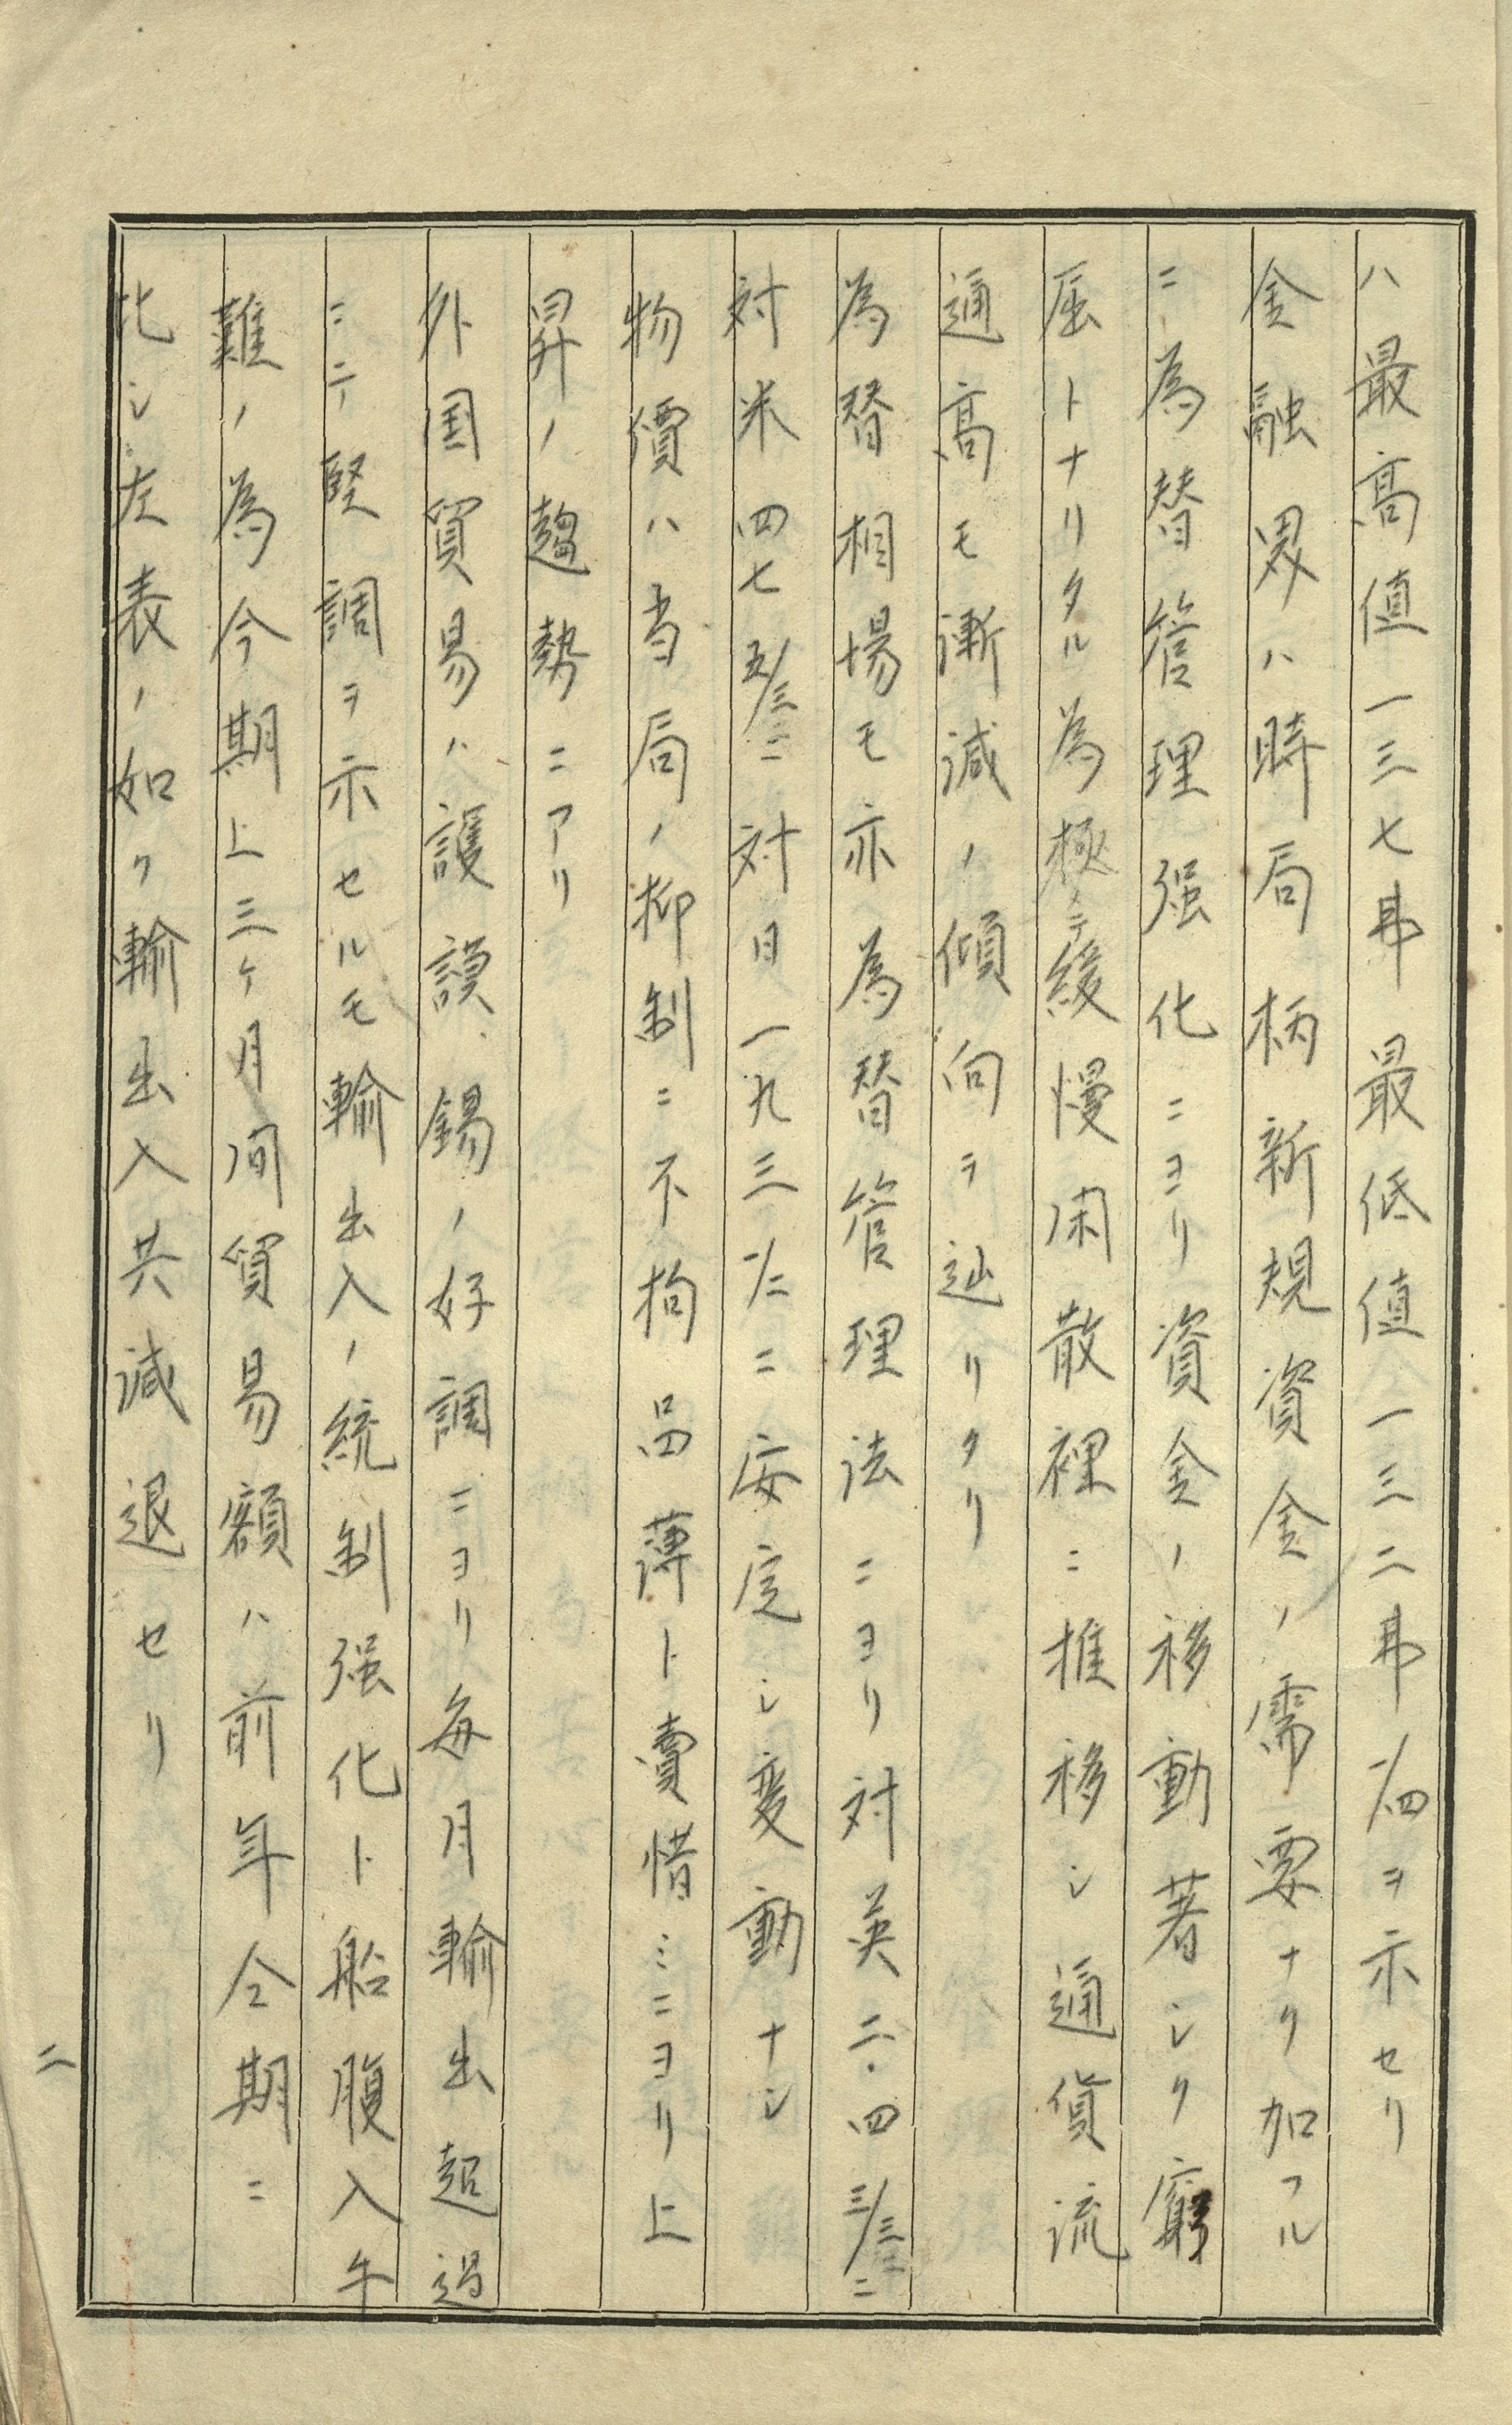 ハ最高値一三七弗最低値一三二弗一/四ヲ示セリ
金融界ハ時局柄新規資金ノ需要ナク加フル
ニ為替管理强化ニヨリ資金ノ移動著シク窮
屈トナリタル為極メテ緩慢閑散裡ニ推移シ通貨流
通高モ漸減ノ傾向ヲ辿リタリ
為替相場モ亦為替管理法ニヨリ対英二・四三/三二ニ
対米四七五/三二対日一九三一/二ニ安定シ変動ナシ
物價ハ当局ノ抑制ニ不拘品薄ト賣惜ミニヨリ上
昇ノ趨勢ニアリ
外国貿易ハ護謨、錫ノ好調ニヨリ毎月輸出超過
ニテ堅調ヲ示セルモ輸出入ノ統制强化ト船腹入手
難ノ為今期上三ケ月间貿易額ハ前年仝期ニ
比シ左表ノ如ク輸出入共減退セリ
二